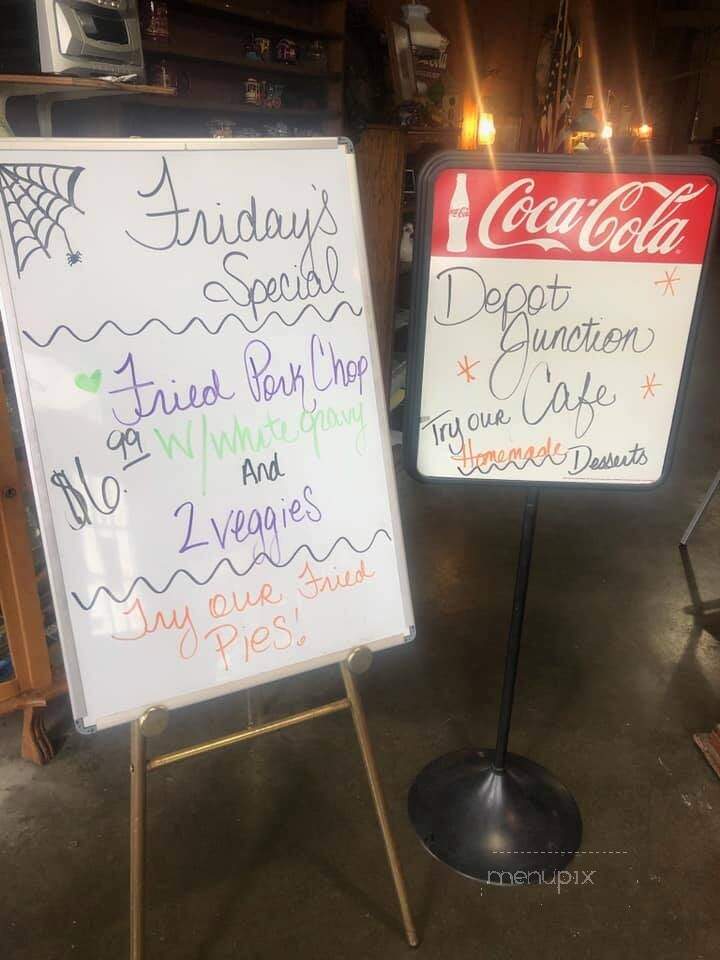 Friday's
Special
Fried Pork Chop
W/white gravy
$6.99
And
2 veggies
Try our Fried
Pies!
Coca-Cola
Depot
Junction
Cafe
Try our
Homemade Desserts
menupix